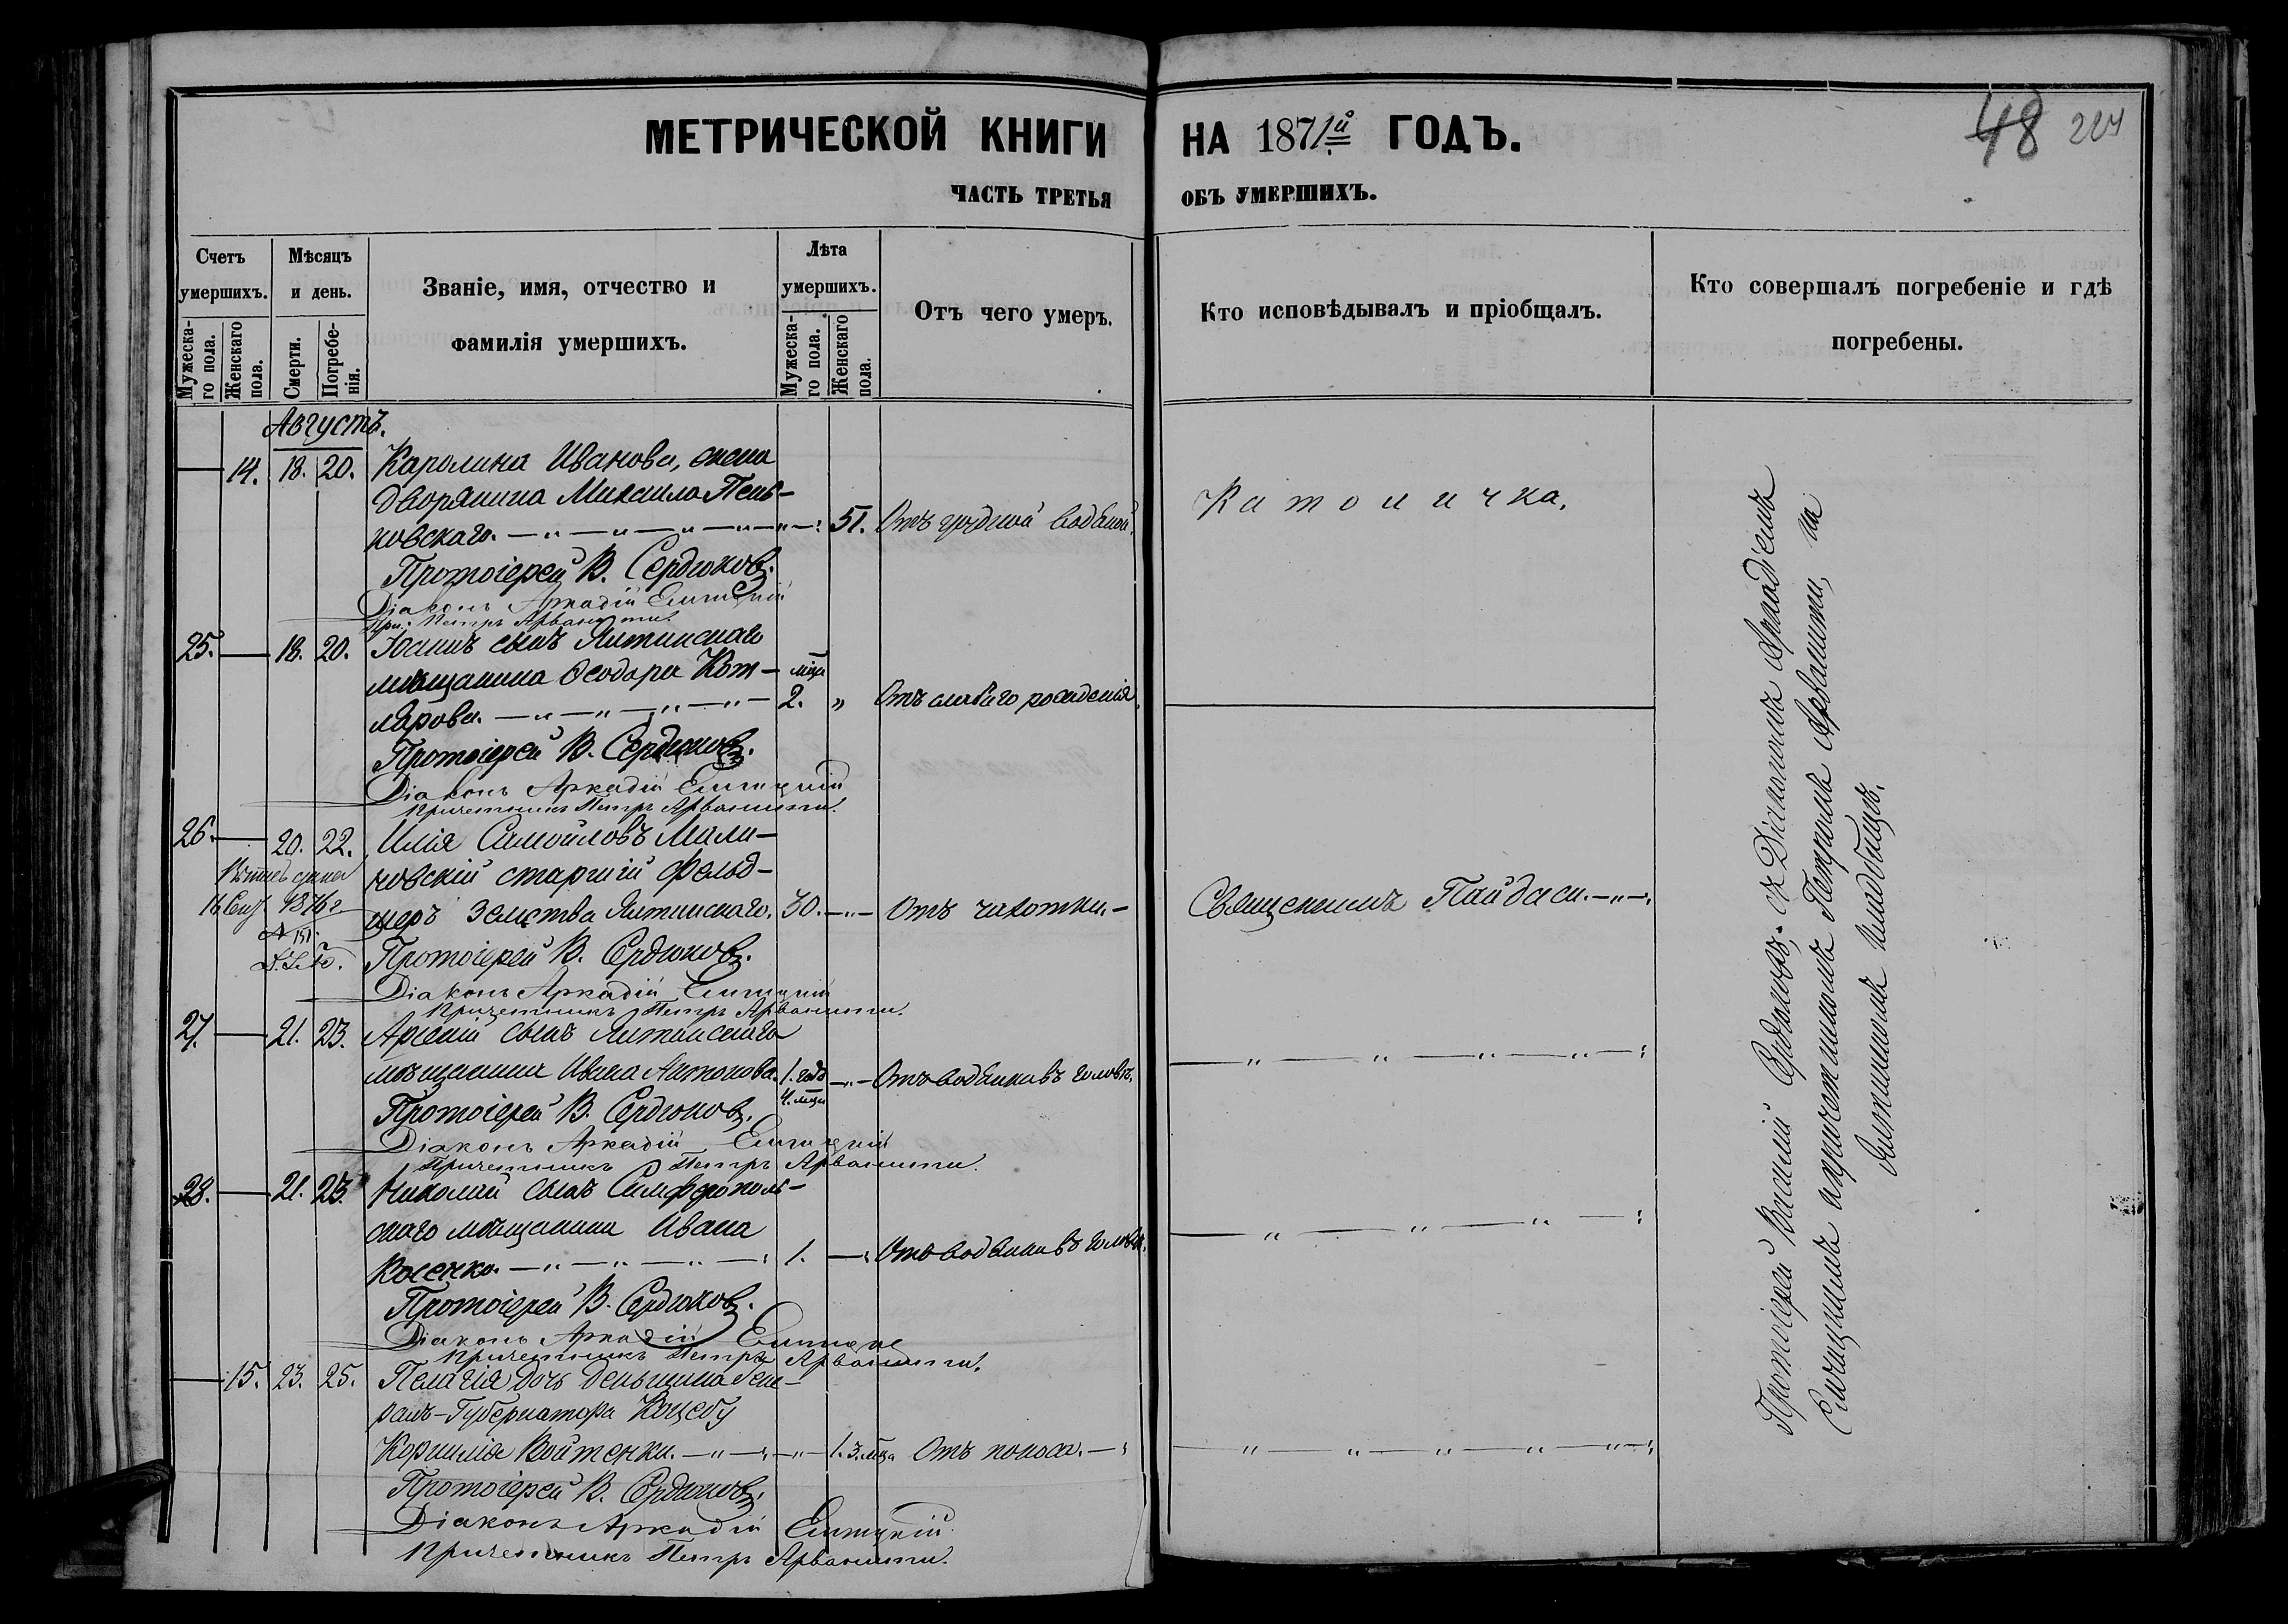 МЕТРИЧЕСКОЙ КНИГИ НА 1871й ГОДЪ.
48 224
ЧАСТЬ ТРЕТЬЯ ОБЪ УМЕРШИХЪ.
Счетъ умершихъ.
Мужеска-
го пола.
Женскаго
пола.
Мѣсяцъ
и день.
Смерти.
Погребе-
нія.
Званіе, имя, отчество и
фамилія умершихъ.
Лѣта
умершихъ.
Мужеска-
го пола.
Женскаго
пола.
Отъ чего умеръ.
Кто исповѣдывалъ и пріобщалъ.
Кто совершалъ погребеніе и гдѣ
погребены.
Августъ.
14. 18. 20. Каролина Иванова, жена
дворянина Михаила Пень-
ковскаго. 51. Отъ грудной водяной.
Католичка.
Протоіерей В. Сердюковъ.
Діаконъ Аркадій
При: Петръ Арванити.
25. 18. 20. Іоаннъ сынъ Ялтинскаго
мѣщанина Ѳеодора Кот-
лярова. мца 2. " Отъ слабаго рожденія.
Протоіерей В. Сердюковъ.
Діаконъ Аркадій
Причетникъ Петръ Арванити.
26. 20. 22. Илія Самойловъ Мали-
новскій старшій фельд-
шеръ Земства Ялтинскаго. 30. Отъ чахотки.
Священникъ Пайдаси.
16 Сент. 1876 г
№ 151.
Протоіерей В. Сердюковъ.
Діаконъ Аркадій
Причетникъ Петръ Арванити.
27. 21. 23. Арсеній сынъ Ялтинскаго
мѣщанина Ивана Антонова. 1. годъ 4. мца Отъ водянки въ головѣ.
Протоіерей В. Сердюковъ.
Діаконъ Аркадій
Причетникъ Петръ Арванити.
28. 21. 23. Николай сынъ Симферополь-
скаго мѣщанина Ивана
Косенко. 1. Отъ водянки въ головѣ.
Протоіерей В. Сердюковъ.
Діаконъ Аркадій
Причетникъ Петръ Арванити.
15. 23. 25. Пелагія дочь деньщика Гене-
ралъ-Губернатора Коцебу
Корнилія Войтенки. 1. 3. мца Отъ поноса.
Протоіерей В. Сердюковъ.
Діаконъ Аркадій
Причетникъ Петръ Арванити.
Протоіерей Василій Сердюковъ, съ Діакономъ Аркадіемъ
и причетникомъ Петромъ Арванити, на
Ялтинскомъ кладбищѣ.